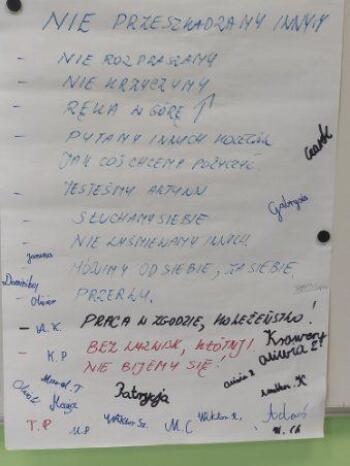 NIE PRZESZKADZAMY INNYM
- NIE ROZPRASZAMY
- NIE KRZYCZYMY
- RĘKA W GÓRĘ ↑
- PYTAMY INNYCH
JAK COŚ CHCEMY POŻYCZYĆ.
- JESTEŚMY AKTYWNI
- SŁUCHAMY SIEBIE
- NIE WYŚMIEWAMY INNYCH.
- MÓWIMY OD SIEBIE, ZA SIEBIE.
- PRZERWY.
- PRACA W ZGODZIE, KOLEŻEŃSTWO!
- BEZ KŁÓTNI!
NIE BIJEMY SIĘ!
Gabrysia
Dominika
Oliwier
A.K.
K.P
Krawery
Oliwia Z!
Marcel.T
Maja
Patrycja
Oliwia R
T.P
Wiktor Sz.
M.C
Wiktor K.
Adaś